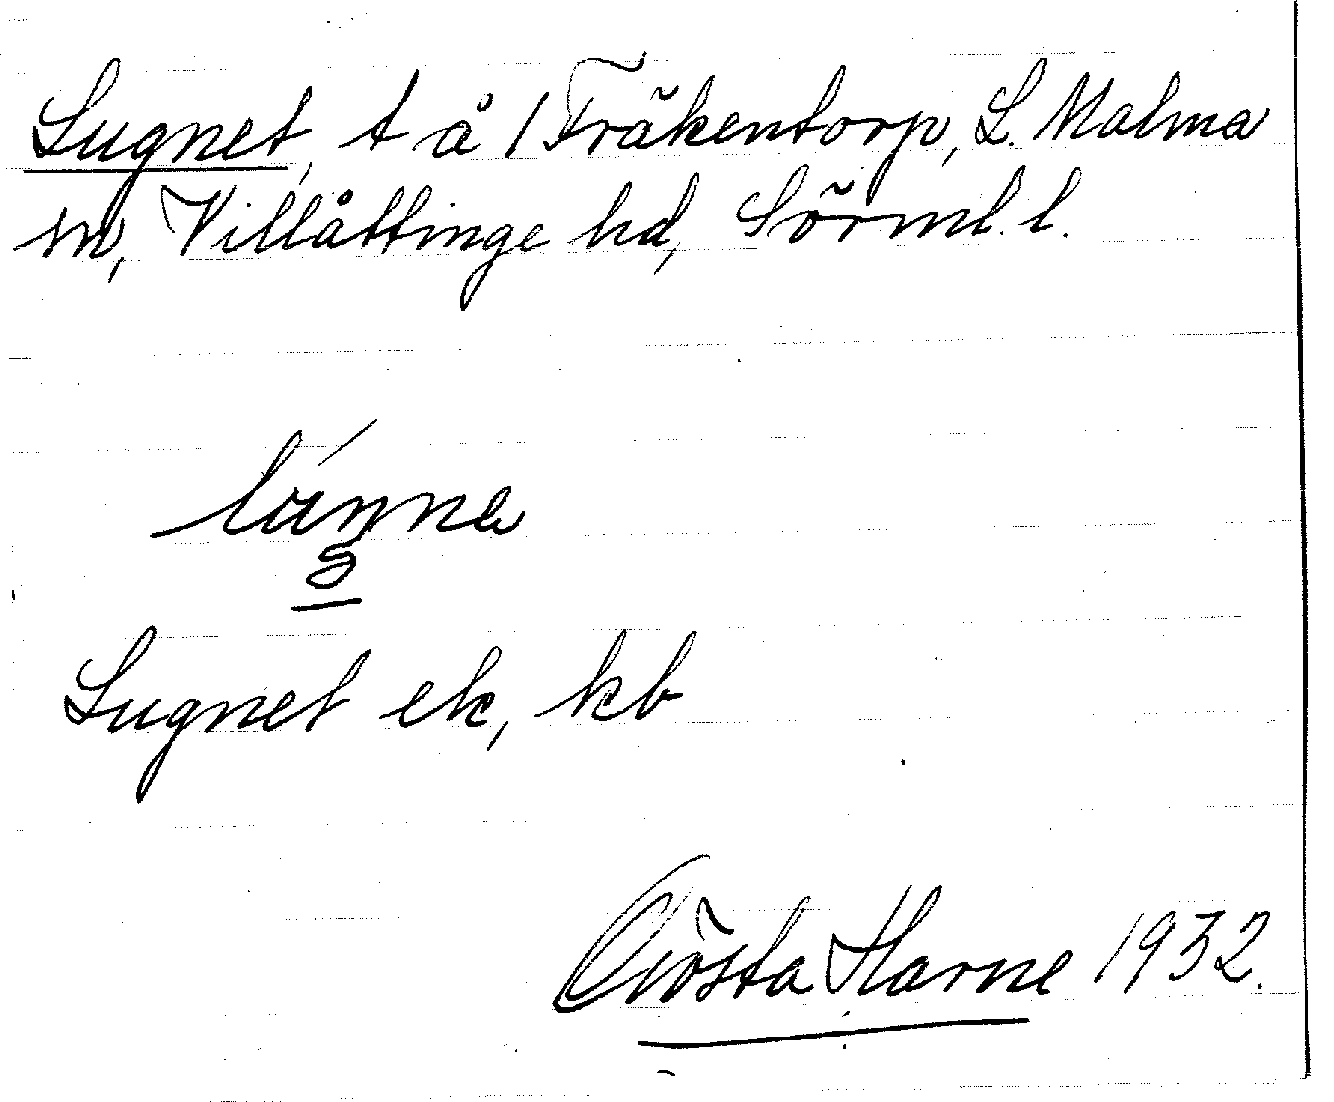 Lugnet, t å 1 Fräkentorp, L. Malma
sn, Villåttinge hd, Sörml. l.
Lugnet ek, kb
Gösta Harne 1932.